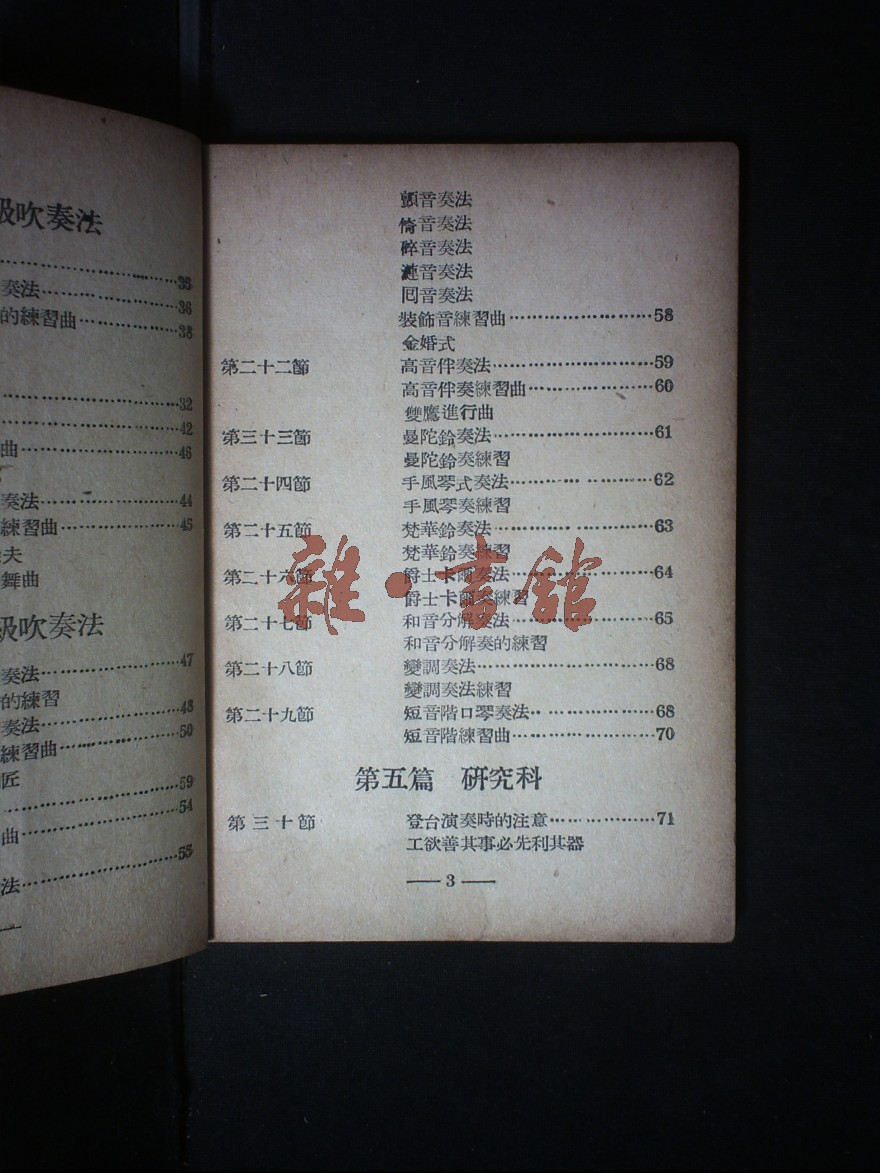 級吹奏法
35
奏法 36
的練習曲 38
32
42
曲 46
奏法 44
練習曲 45
夫
舞曲
級吹奏法
奏法 47
的練習
奏法 48
練習曲 50
匠
59
曲 54
法 55
顫音奏法
倚音奏法
碎音奏法
漣音奏法
回音奏法
裝飾音練習曲 58
金婚式
第二十二節 高音伴奏法 59
高音伴奏練習曲 60
雙鷹進行曲
第三十三節 曼陀鈴奏法 61
曼陀鈴奏練習
第二十四節 手風琴式奏法 62
手風琴奏練習
第二十五節 梵華鈴奏法 63
梵華鈴奏練習
第二十六節 爵士卡爾奏法 64
爵士卡爾奏練習
第二十七節 和音分解奏法 65
和音分解奏的練習
第二十八節 變調奏法 68
變調奏法練習
第二十九節 短音階口琴奏法 68
短音階練習曲 70
第五篇 研究科
第三十節 登台演奏時的注意 71
工欲善其事必先利其器
— 3 —
雜·書館